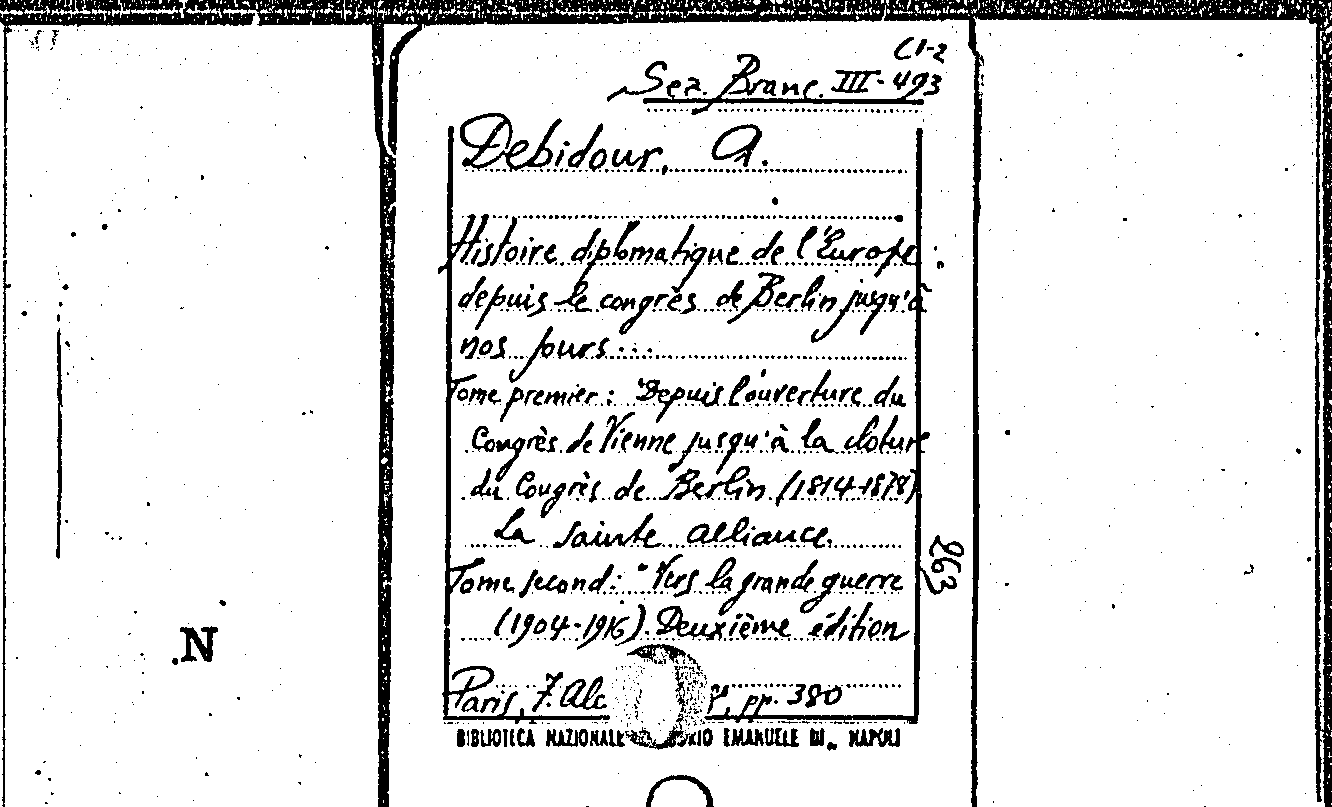 (1-2
Sez. Branc. III - 493
Debidour, A.
Histoire diplomatique de l'Europe :
depuis le congrès de Berlin jusqu'à
nos jours...
Tome premier : "Depuis l'ouverture du
Congrès de Vienne jusqu'à la cloture
du Congrès de Berlin (1814-1878)
La sainte alliance.
Tome second : "Vers la grande guerre
(1904-1916). Deuxième édition
263
Paris, F. Alc pp. 380
BIBLIOTECA NAZIONALE EMANUELE III„ NAPOLI
N